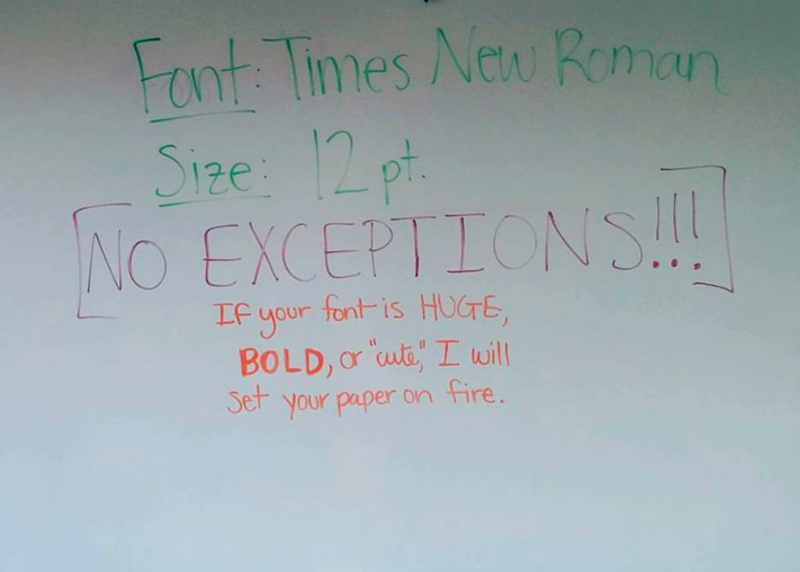 Font: Times New Roman
Size: 12 pt.
[NO EXCEPTIONS!!!]
If your font is HUGE,
BOLD, or "cute," I will
set your paper on fire.